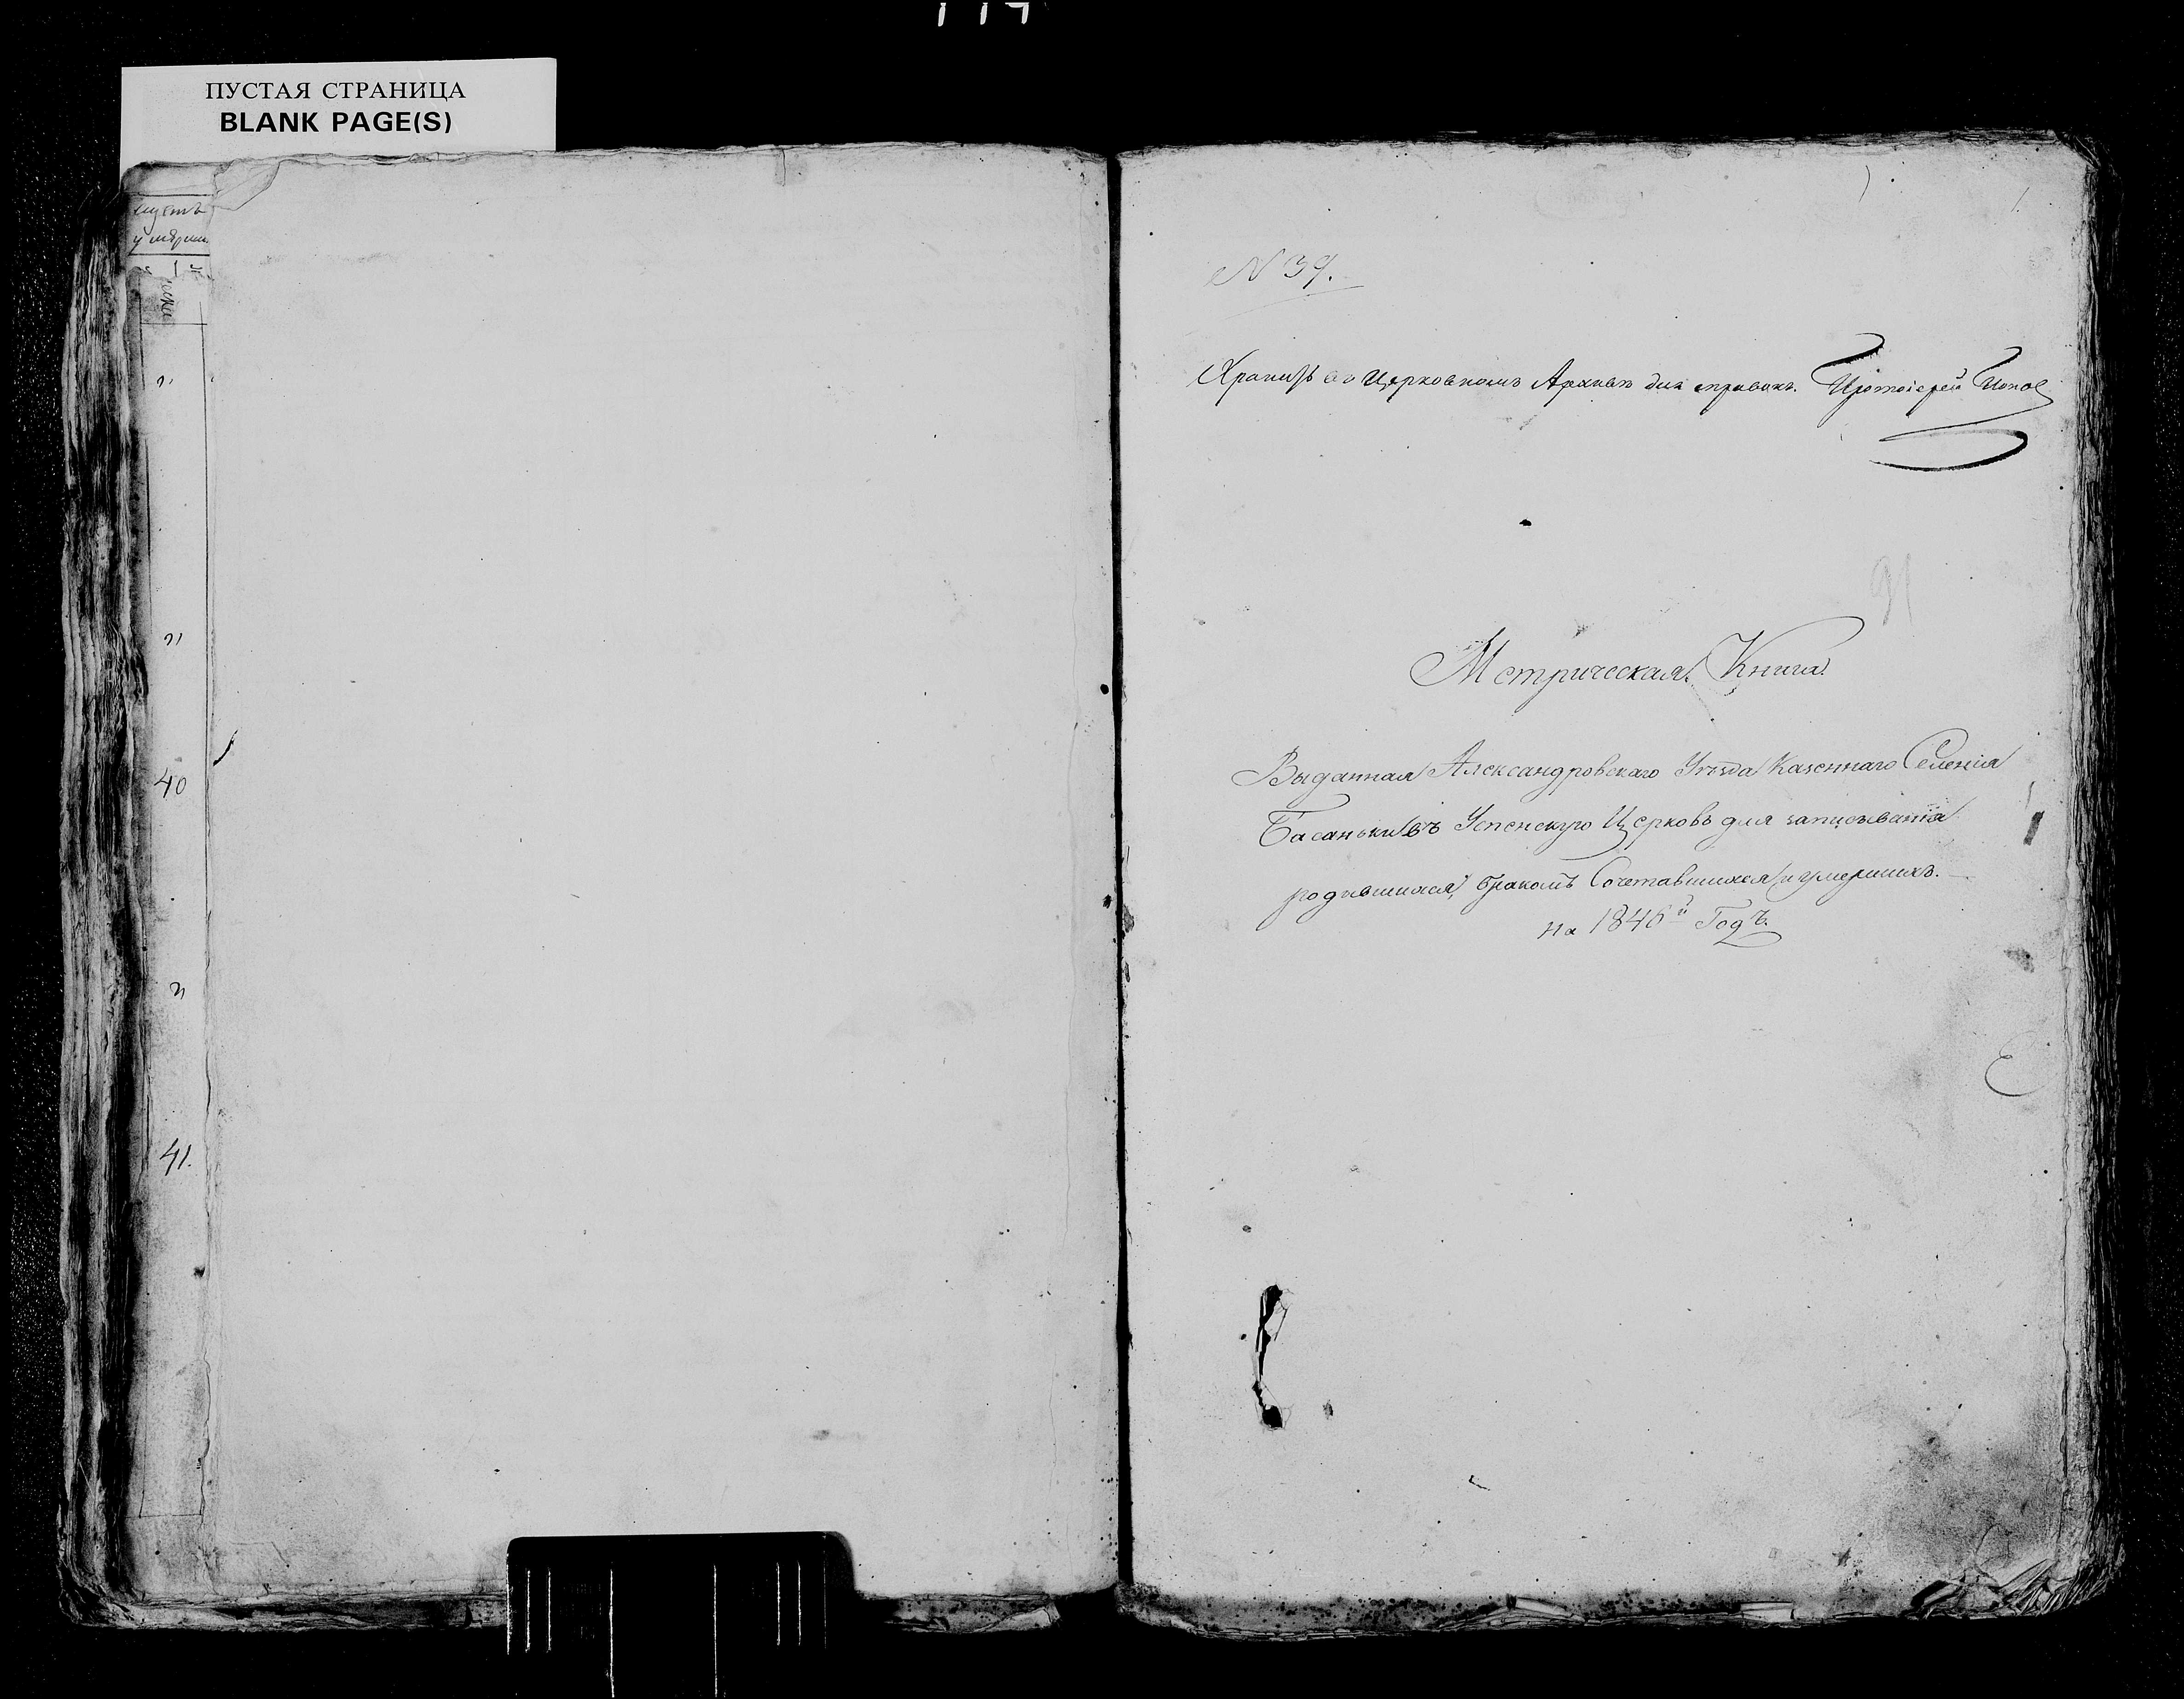 ПУСТАЯ СТРАНИЦА
BLANK PAGE(S)
40
41.
1.
N 39.
Хранить въ Церковномъ Архивѣ для справокъ. Протоіерей Попов
91
Метрическая Книга
Выданная Александровскаго Уѣзда Казеннаго Селенія
Басаньки въ Успенскую Церковь для записыванія
родившихся, бракомъ Сочетавшихся и умершихъ.
на 1846й Годъ.